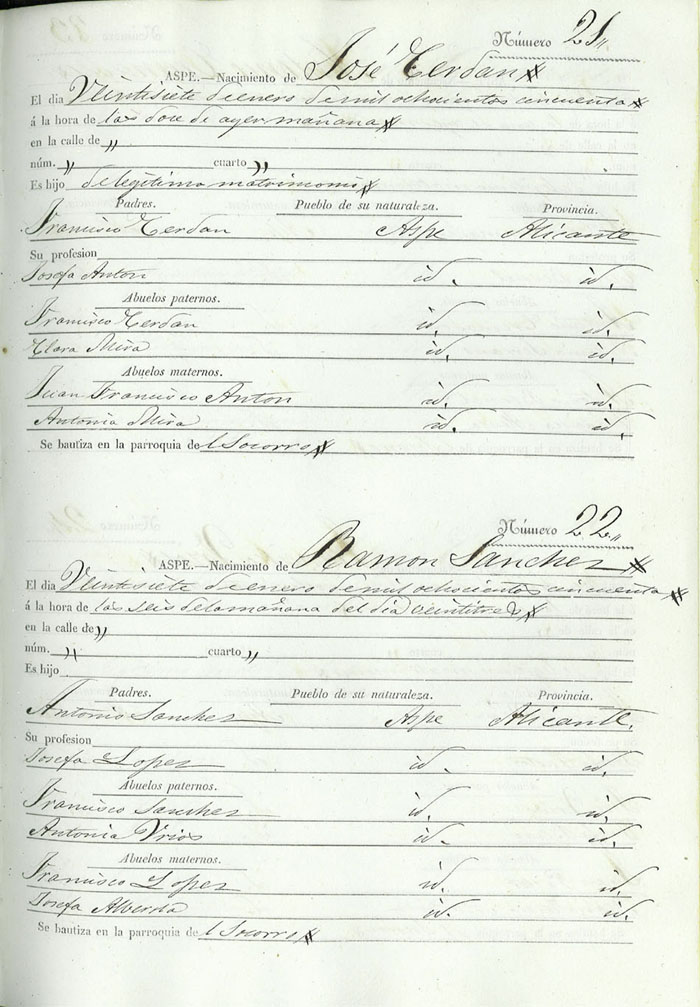 Número 21,,
ASPE.—Nacimiento de José Cerdan
El dia Veintisiete de enero de mil ochocientos cincuenta
á la hora de las doce de ayer mañana
en la calle de ,,
núm. ,, cuarto ,,
Es hijo de legitimo matrimonio
Padres. Pueblo de su naturaleza. Provincia.
Francisco Cerdan Aspe Alicante
Su profesion
Josefa Anton id. id.
Abuelos paternos.
Francisco Cerdan id. id.
Clara Mira id. id.
Abuelos maternos.
Juan Francisco Anton id. id.
Antonia Mira id. id.
Se bautiza en la parroquia del Socorro
Número 22,,
ASPE.—Nacimiento de Ramon Sanchez
El dia Veintisiete de enero de mil ochocientos cincuenta
á la hora de las seis de la mañana del dia veintitres
en la calle de ,,
núm. ,, cuarto ,,
Es hijo
Padres. Pueblo de su naturaleza. Provincia.
Antonio Sanchez Aspe Alicante.
Su profesion
Josefa Lopez id. id.
Abuelos paternos.
Francisco Sanchez id. id.
Antonia Vrios id. id.
Abuelos maternos.
Francisco Lopez id. id.
Josefa id. id.
Se bautiza en la parroquia del Socorro